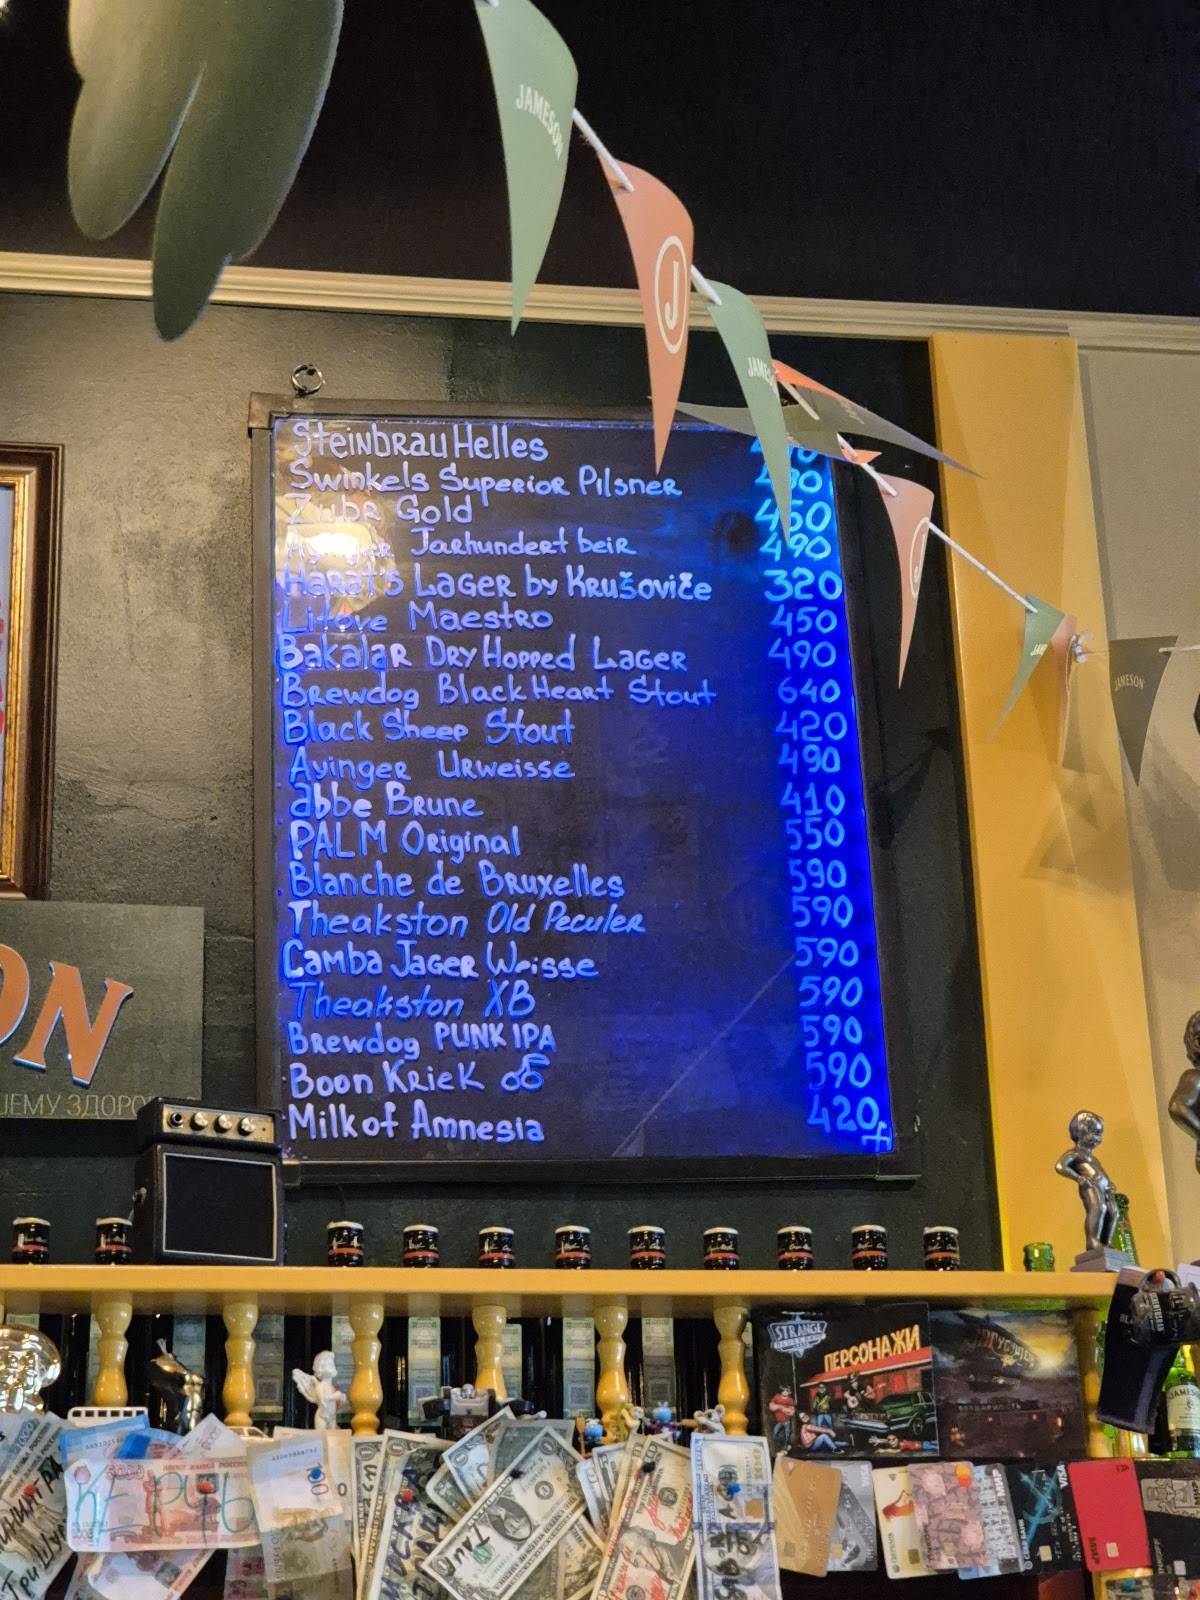 JAMESON
J
JAMES
J
JAMESON
Steinbrau Helles
Swinkels Superior Pilsner 490
Zubr Gold 450
Ayinger Jarhundert beir 490
Harat's Lager by Krušoviče 320
Litove Maestro 450
Bakalar Dry Hopped Lager 490
Brewdog Black Heart Stout 640
Black Sheep Stout 420
Ayinger Urweisse 490
abbe Brune 410
PALM Original 550
Blanche de Bruxelles 590
Theakston Old Peculer 590
Camba Jager Weisse 590
Theakston XB 590
Brewdog PUNK IPA 590
Boon Kriek 590
Milk of Amnesia 420
ON
ЗДОРО
STRANGE
ПЕРСОНАЖИ
VISA
VISA